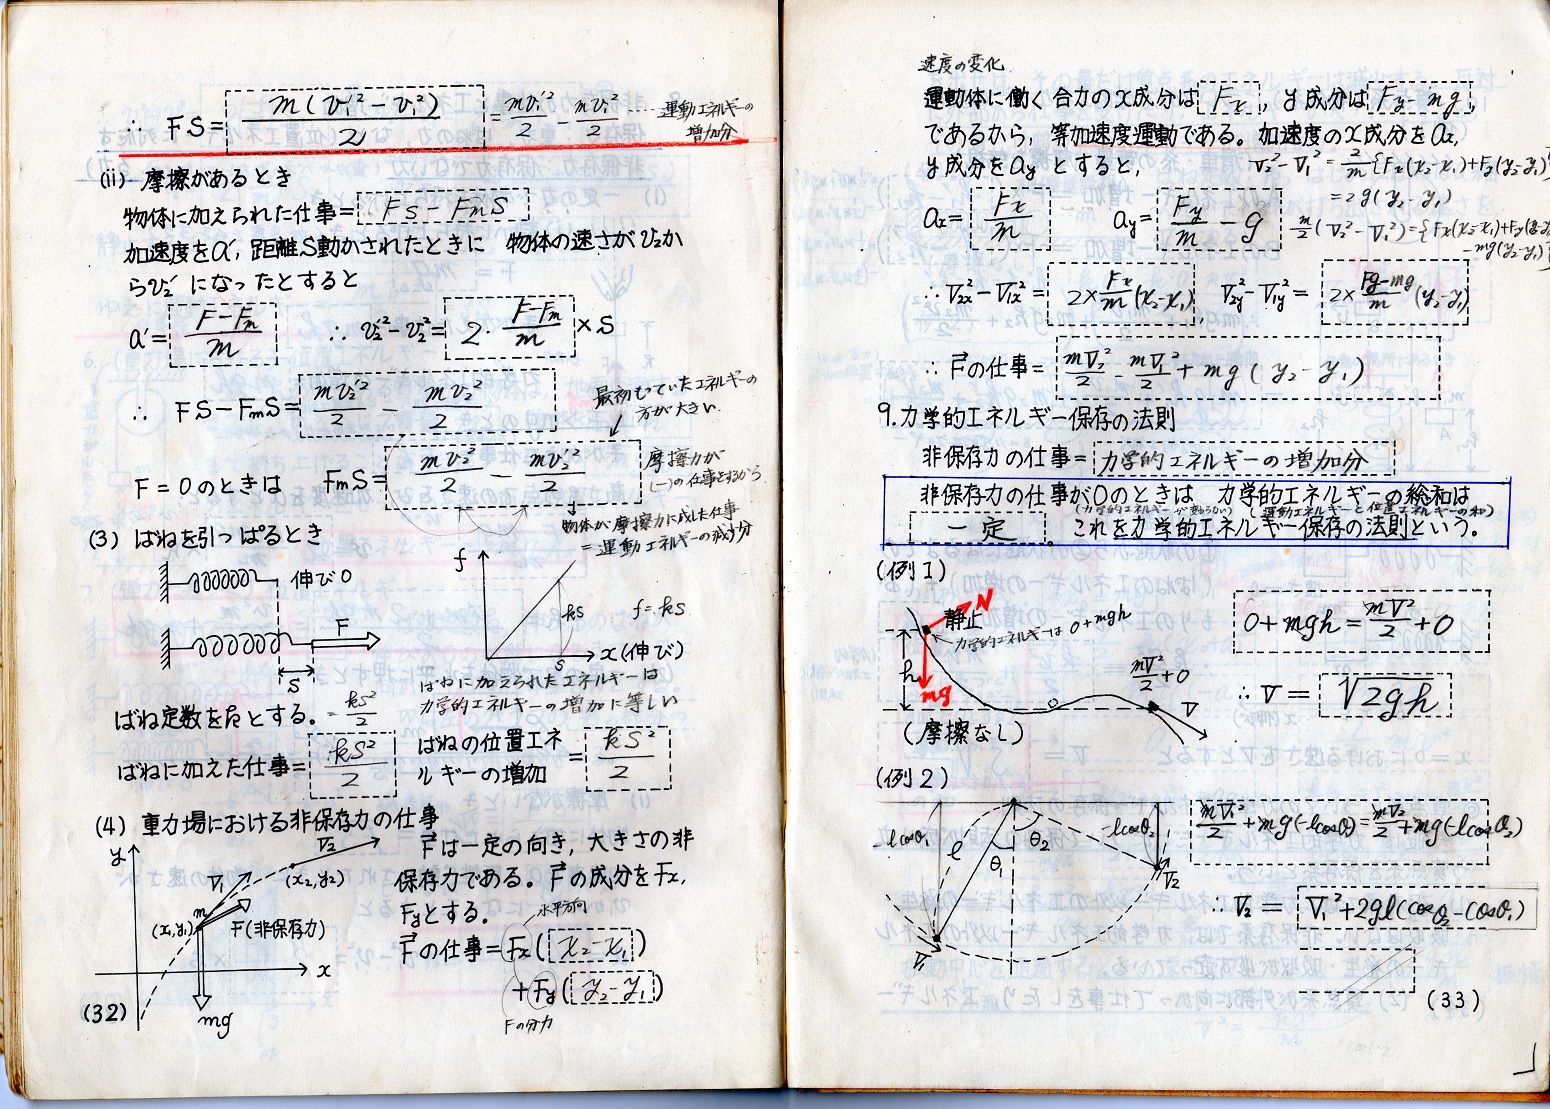 ∴ FS= m(v₁'²−v₁²)/2 = mv₁'²/2 − mv₁²/2 …… 運動エネルギーの
増加分
(ii) 摩擦があるとき
物体に加えられた仕事= FS − FmS
加速度をa′, 距離S動かされたときに 物体の速さがv₂か
らv₂′になったとすると
a′= (F−Fm)/m ∴ v₂'²−v₂²= 2・(F−Fm)/m ×S
∴ FS−FmS= mv₂'²/2 − mv₂²/2
最初もっていたエネルギーの
方が大きい
F=0のときは FmS= mv₂²/2 − mv₂'²/2
摩擦力が
(−)の仕事をするから
物体が摩擦力に成した仕事
=運動エネルギーの減少分
(3) ばねを引っぱるとき
伸び0
F
S
f
kS
f=kS
S
x(伸び)
ばねに加えられたエネルギーは
力学的エネルギーの増加に等しい
ばね定数をkとする。 = kS²/2
ばねに加えた仕事= kS²/2
ばねの位置エネ
ルギーの増加 = kS²/2
(4) 重力場における非保存力の仕事
y
V₂
V₁
(x₂,y₂)
m
(x₁,y₁)
F(非保存力)
x
mg
F⃗は一定の向き, 大きさの非
保存力である。F⃗の成分をFx,
Fyとする。
水平方向
F⃗の仕事=Fx(x₂−x₁)
+Fy(y₂−y₁)
Fの分力
(32)
速度の変化
運動体に働く合力のx成分は Fx, y成分は Fy−mg,
であるから, 等加速度運動である。加速度のx成分をax,
y成分をayとすると,
V₂²−V₁²= 2/m {Fx(x₂−x₁)+Fy(y₂−y₁)}
=2g(y₂−y₁)
m/2 (V₂²−V₁²)={Fx(x₂−x₁)+Fy(y₂−y₁)
−mg(y₂−y₁)
ax= Fx/m ay= Fy/m − g
∴V₂x²−V₁x²= 2×Fx/m (x₂−x₁), V₂y²−V₁y²= 2×(Fy−mg)/m (y₂−y₁)
∴F⃗の仕事= mV₂²/2 − mV₁²/2 + mg(y₂−y₁)
9.力学的エネルギー保存の法則
非保存力の仕事= 力学的エネルギーの増加分
非保存力の仕事が0のときは 力学的エネルギーの総和は
(力学的エネルギーが変わらない) (運動エネルギーと位置エネルギーの和)
一定。これを力学的エネルギー保存の法則という。
(例1)
N
静止
力学的エネルギーは 0+mgh
h
mg
mV²/2+0
V
(摩擦なし)
0+mgh= mV²/2 +0
∴ V= √2gh
(例2)
−lcosθ₁
l
θ₁
θ₂
−lcosθ₂
V₂
V₁
mV₁²/2+mg(−lcosθ₁)=mV₂²/2+mg(−lcosθ₂)
∴ V₂= V₁²+2gl(cosθ₂−cosθ₁)
(33)